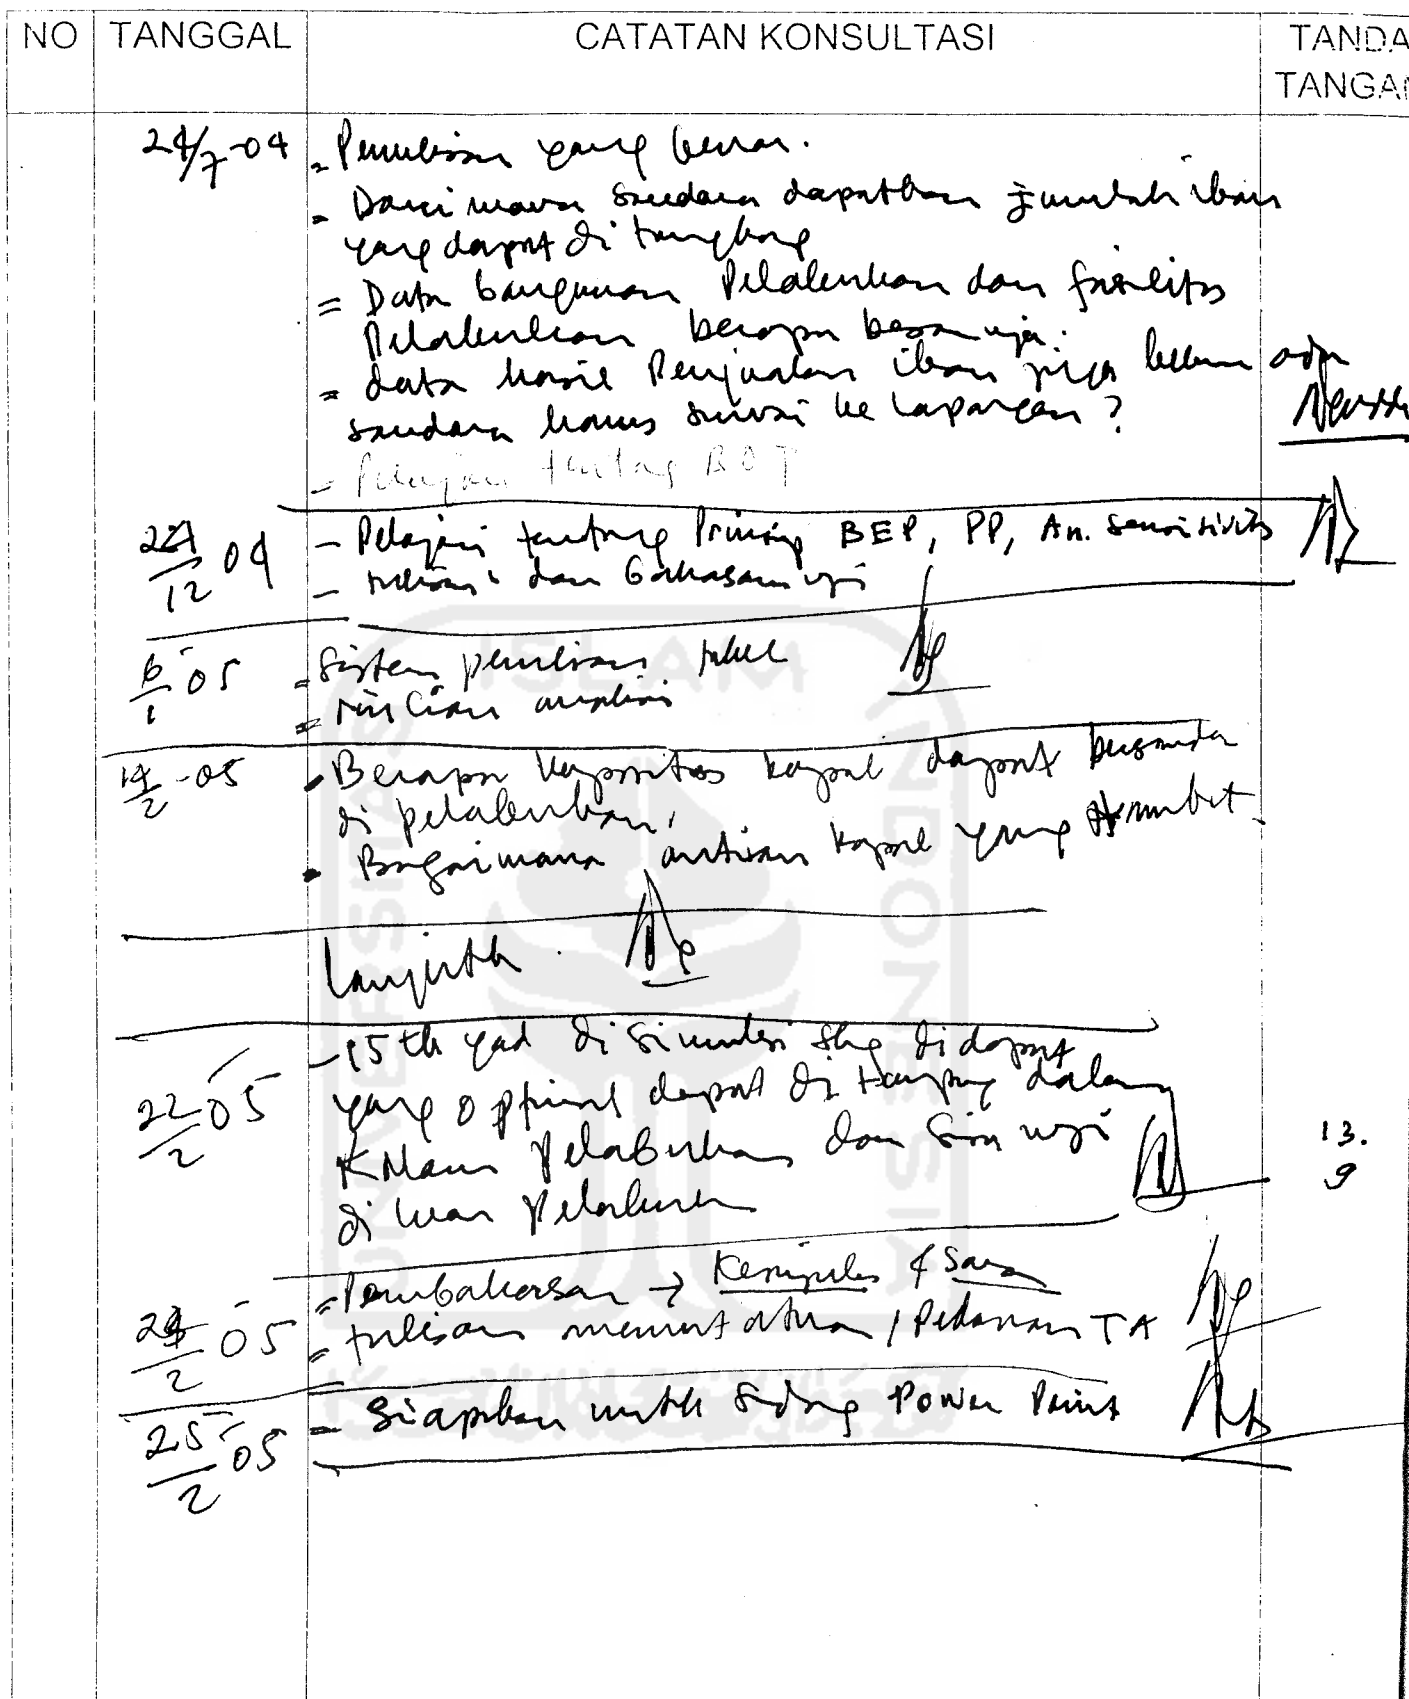 NO TANGGAL CATATAN KONSULTASI TANDA
TANGAN
24/7-04 - Penulisan yang benar.
- Dari mana saudara dapatkan jumlah ikan
yang dapat di tangkap
= Data bangunan Pelabuhan dan fasilitas
Pelabuhan berapa besarnya.
= data hasil Penjualan ikan juga belum ada
saudara harus survai ke lapangan?
- Pelajari tentang BOT
12 04 - Pelajari tentang Prinsip BEP, PP, An. sensitivitas
- dan bahasanya
6/1 05 = Sistem penulisan tabel
= rincian analisis
14/2-05 - Berapa kapasitas kapal dapat bersandar
di pelabuhan,
- Bagaimana antrian kapal yang
Lanjutk
22/2 05 - 15 th yad di simulasi shg didapat
yang optimal dapat di tampung dalam
Kolam Pelabuhan dan sisa nya
di luar Pelabuhan
13.
9
2 05 = Pembahasan → Kesimpulan & Saran
= tulisan menurut aturan / Pedoman TA
25/2 05 = Siapkan untk Sidang Power Point
ISLAM
UNIVERSITAS
INDONESIA